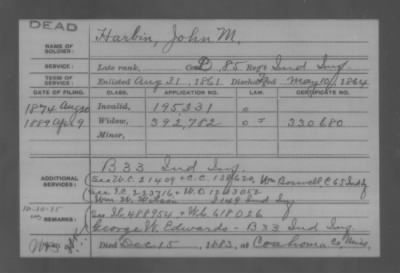 DEAD
NAME OF SOLDIER: Harbin, John M.
SERVICE: Late rank, Co. D, 85 Reg't Ind Inf
TERM OF SERVICE: Enlisted Aug 21, 1861. Discharged May 10, 1864
DATE OF FILING. CLASS. APPLICATION NO. LAW. CERTIFICATE NO.
1874 Aug 20 Invalid, 195331
1889 Apl 9 Widow, 392,782 330680
Minor,
B 33 Ind Inf.
ADDITIONAL SERVICES: See W.C. 21409 + C.C. 129620, Wm Boswell, C 65 Ind
See I.C. 223716 + W.O. 1213052
Wm W. Wilson I 149 Ind Inf
10-20-35
REMARKS: See I.C. 488954 + W.C. 618026
George W. Edwards - B 33 Ind Inf
Died Dec 15, 1883, at Coahoma Co., Miss.